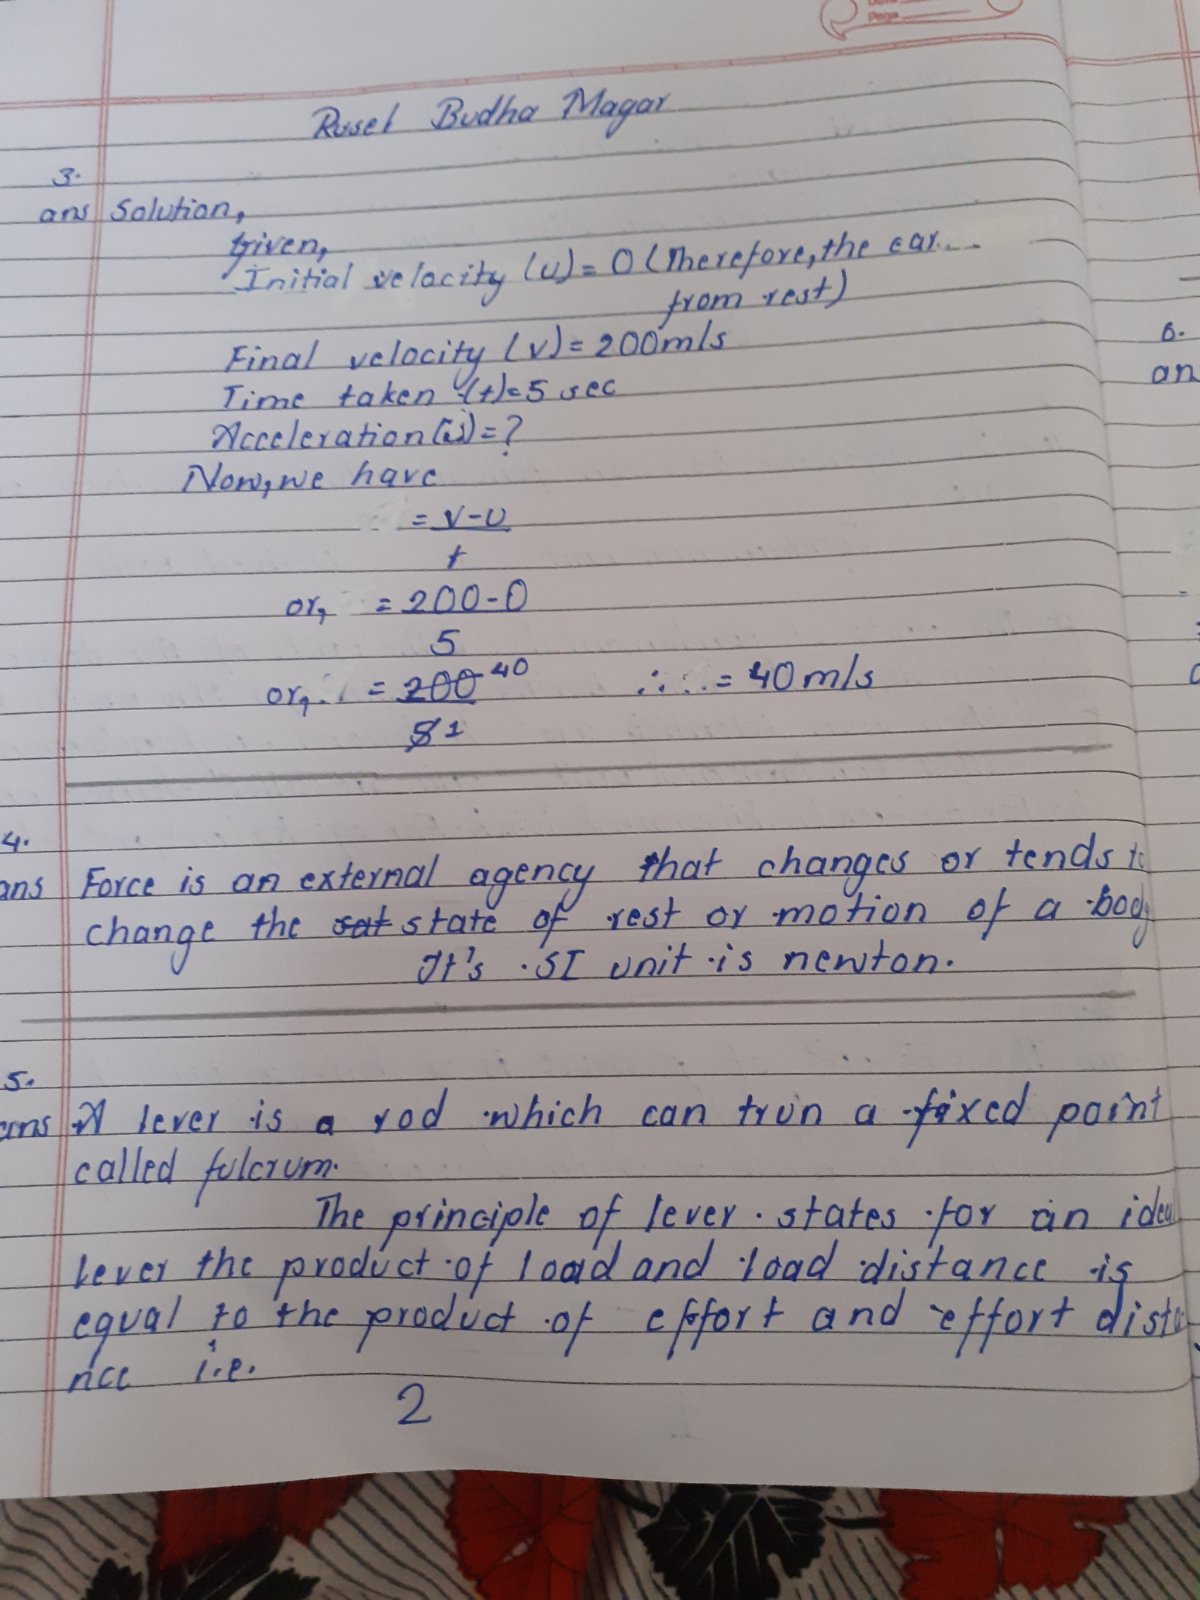 Page
Rusel Budha Magar
3.
ans Solution,
given,
Initial velocity (u) = 0 (Therefore, the car...
from rest)
Final velocity (v) = 200m/s
Time taken (t) = 5 sec
Acceleration (a) = ?
Now, we have
= v-u
t
or, = 200-0
5
or, = 200 40 ∴ = 40 m/s
5 1
4.
ans Force is an external agency that changes or tends to
change the sat state of rest or motion of a body
It's SI unit is newton.
5.
ans A lever is a rod which can trun a fixed point
called fulcrum.
The principle of lever states for an idea
lever the product of load and load distance is
equal to the product of effort and effort dista
nce i.e.
2
6.
an